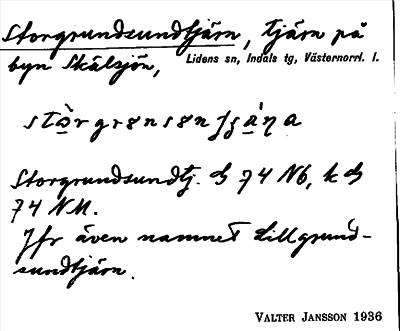 Storgrundsundtjärn, tjärn på
byn Skälsjön, Lidens sn, Indals tg, Västernorrl. l.
Storgrundsundtj. ds 74 NÖ, k ds
74 NM.
Jfr även namnet Lillgrund-
sundtjärn.
VALTER JANSSON 1936